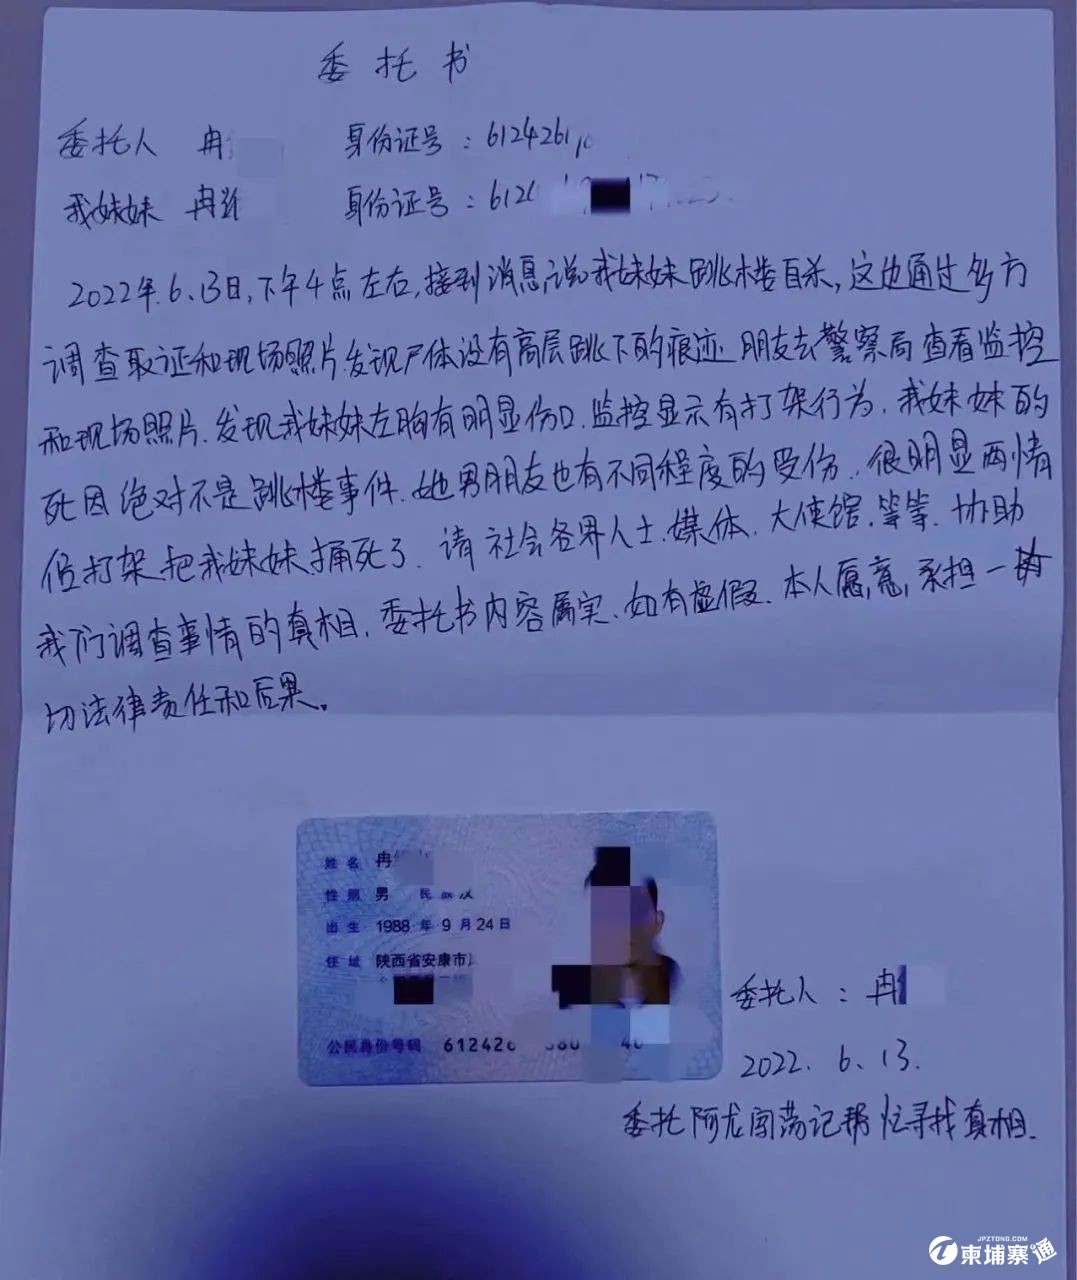 委托书
委托人 冉 身份证号：6124261
我妹妹 冉 身份证号：612
2022年.6.13日,下午4点左右,接到消息,说我妹妹跳楼自杀,这边通过多方
调查取证和现场照片.发现尸体没有高层跳下的痕迹.朋友去警察局查看监控
和现场照片.发现我妹妹左胸有明显伤口.监控显示有打架行为.我妹妹的
死因绝对不是跳楼事件.她男朋友也有不同程度的受伤.很明显两情
侣打架.把我妹妹捅死了.请社会各界人士.媒体.大使馆.等等.协助
我们调查事情的真相.委托书内容属实.如有虚假.本人愿意,承担一
切法律责任和后果。
姓名 冉
性别 男 民族汉
出生 1988 年 9 月 24 日
住址 陕西省安康市
公民身份号码 612426
委托人：冉
2022. 6. 13.
委托阿龙闯荡记帮忙寻找真相.
JPZTONG.COM
柬埔寨通